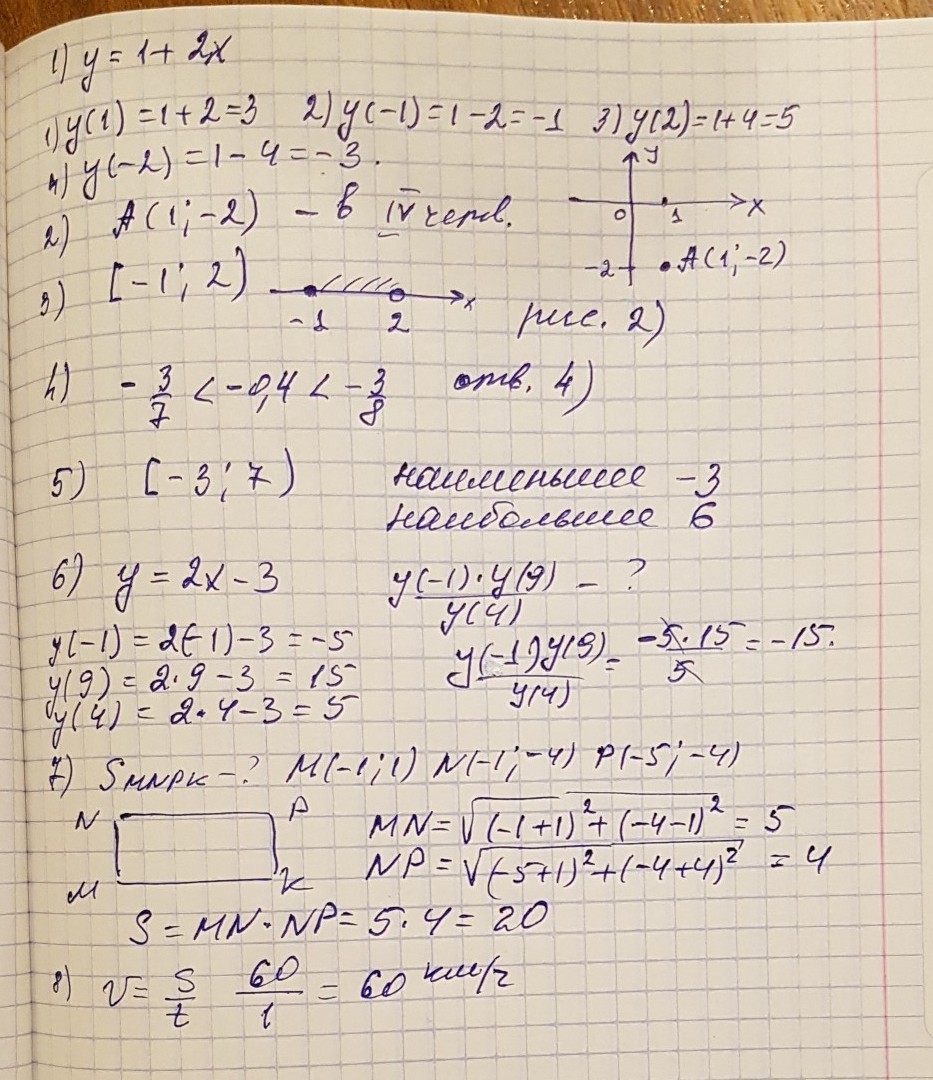 1) y = 1 + 2x
1) y(1) = 1 + 2 = 3 2) y(-1) = 1 - 2 = -1 3) y(2) = 1 + 4 = 5
4) y(-2) = 1 - 4 = -3.
y
0 1 x
-2 A(1; -2)
2) A(1; -2) - в IV четв.
3) [-1; 2) -1 2 x рис. 2)
4) -3/7 < -0,4 < -3/8 отв. 4)
5) [-3; 7) наименьшее -3
наибольшее 6
6) y = 2x - 3 y(-1)·y(9)/y(4) - ?
y(-1) = 2(-1) - 3 = -5
y(9) = 2·9 - 3 = 15 y(-1)y(9)/y(4) = -5·15/5 = -15.
y(4) = 2·4 - 3 = 5
7) SMNPK - ? M(-1; 1) N(-1; -4) P(-5; -4)
N P MN = √(-1+1)²+(-4-1)² = 5
M K NP = √(-5+1)²+(-4+4)² = 4
S = MN·NP = 5·4 = 20
8) v = S/t 60/1 = 60 км/ч